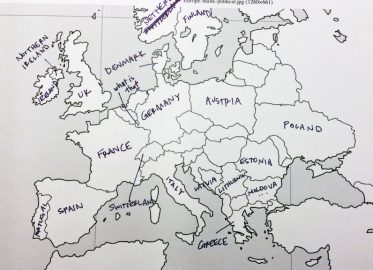 Europe-blank-political.jpg (1260×861)
FINLAND
NORTHERN
IRELAND
DENMARK
what is
that
IRELAND
UK
GERMANY
AUSTRIA
POLAND
FRANCE
ESTONIA
ITALY
LATVIA
LITHUANIA
MOLDOVA
PORTUGAL
SPAIN
SWITZERLAND
GREECE